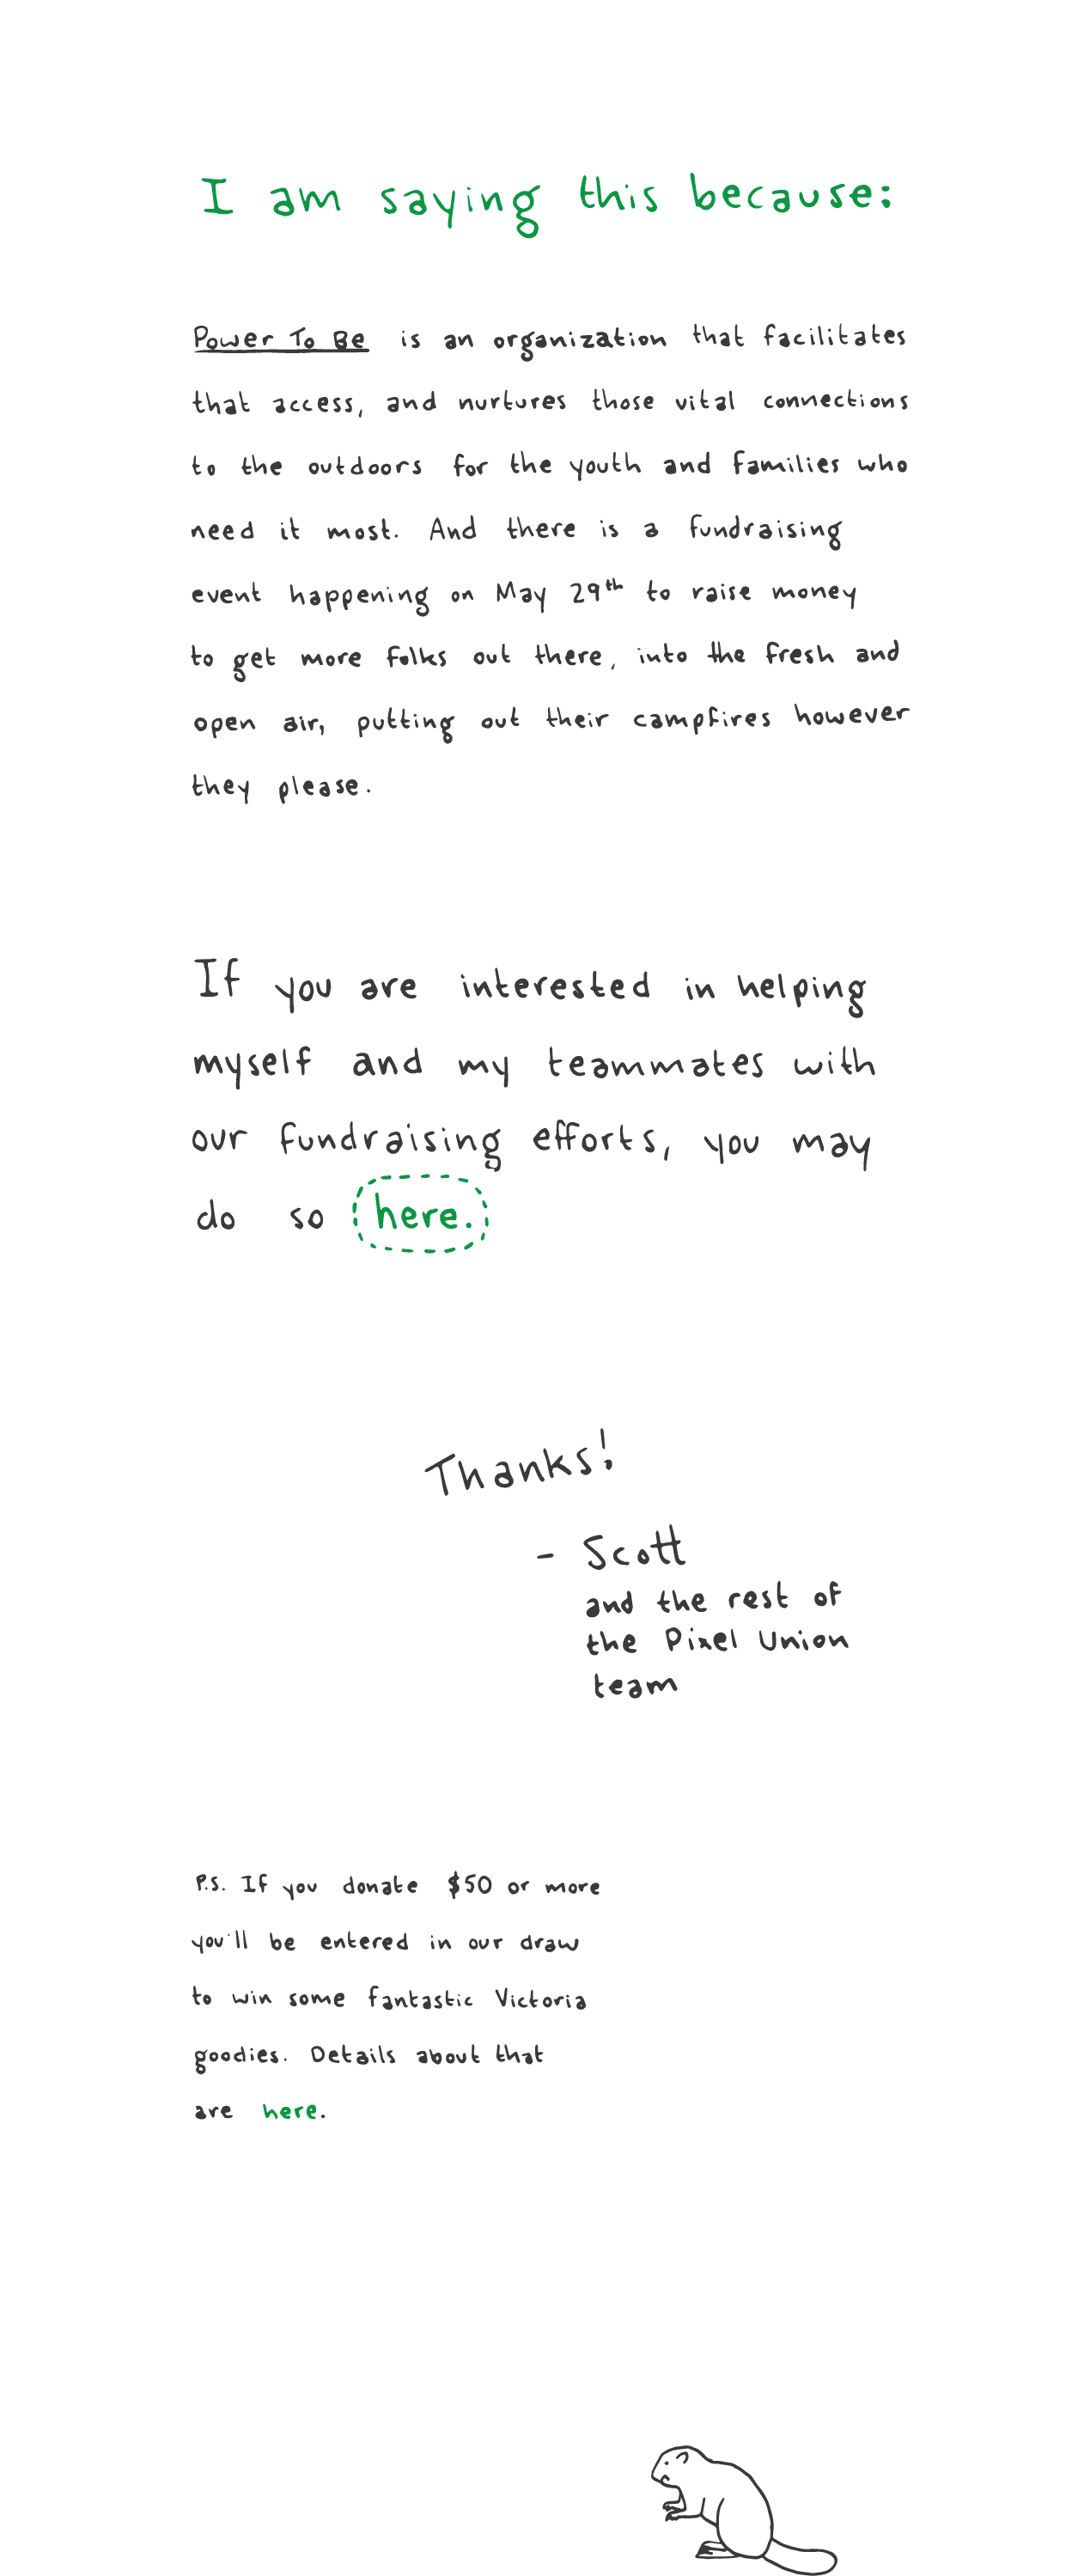 I am saying this because:
Power To Be is an organization that facilitates
that access, and nurtures those vital connections
to the outdoors for the youth and families who
need it most. And there is a fundraising
event happening on May 29th to raise money
to get more folks out there, into the fresh and
open air, putting out their campfires however
they please.
If you are interested in helping
myself and my teammates with
our fundraising efforts, you may
do so here.
Thanks!
- Scott
and the rest of
the Pixel Union
team
P.S. If you donate $50 or more
you'll be entered in our draw
to win some fantastic Victoria
goodies. Details about that
are here.